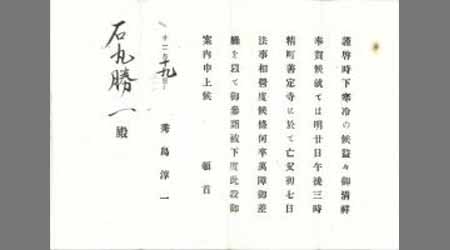 謹啓時下寒冷の候益々御清祥
奉賀候就ては明廿日午後三時
精町善定寺に於て亡父初七日
法事相營度候條何卒萬障御差
繰を以て御參詣被下度此段御
案内申上候 頓首
十二月十九日
秀島淳一
石丸勝一殿